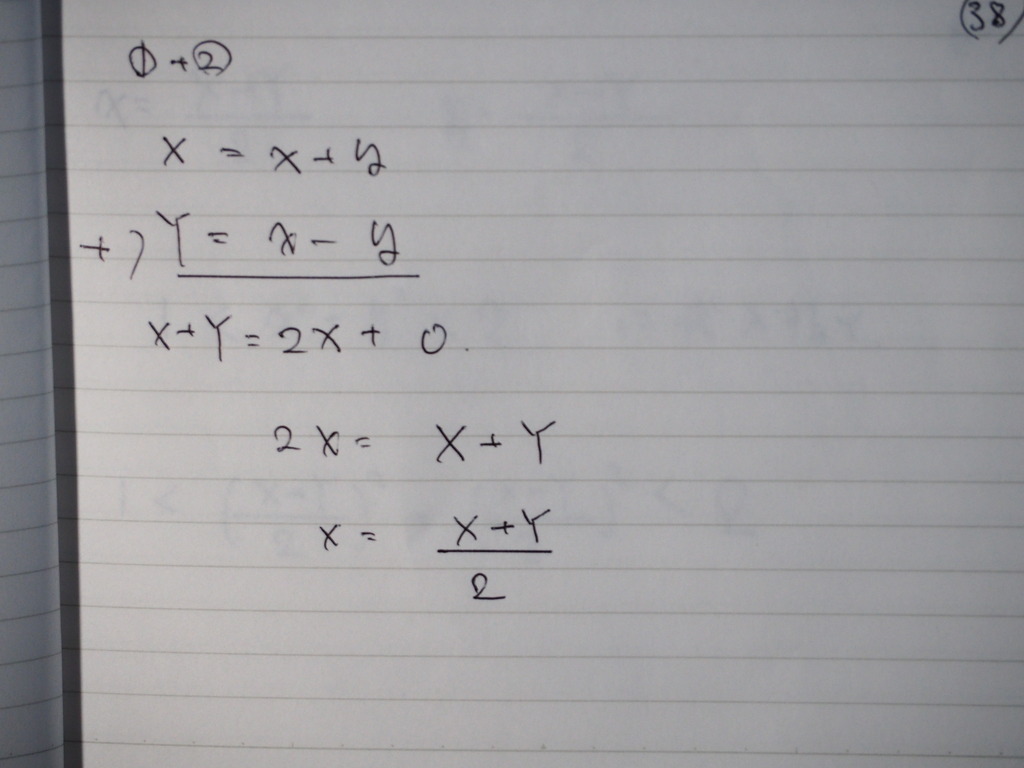 (38)
① + ②
X = x + y
+) Y = x - y
X + Y = 2x + 0.
2x = X + Y
x = \frac{X + Y}{2}